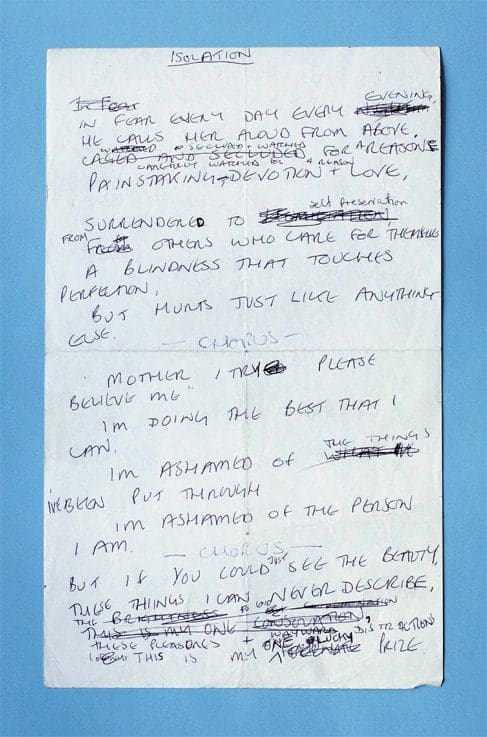 ISOLATION
In Fear
EVENING,
IN FEAR EVERY DAY EVERY
HE CALLS HER ALOUD FROM ABOVE,
WATCHED + SECLUDED + WATCHED
CAGED AND SECLUDED FOR A REASON
CAREFULLY WATCHED FOR A REASON
PAINSTAKING DEVOTION + LOVE,
self preservation
SURRENDERED TO
FROM OTHERS WHO CARE FOR THEMSELVES
A BLINDNESS THAT TOUCHES
PERFECTION,
BUT HURTS JUST LIKE ANYTHING
ELSE.
— CHORUS —
MOTHER I TRY PLEASE
BELIEVE ME"
IM DOING THE BEST THAT I
CAN.
THE THINGS
IM ASHAMED OF WHAT IVE
I'VE BEEN PUT THROUGH
IM ASHAMED OF THE PERSON
I AM.
— CHORUS —
BUT IF YOU COULD JUST SEE THE BEAUTY,
THESE THINGS I CAN NEVER DESCRIBE,
THE BRIGHTNESS
THIS IS MY ONE CONSOLATION,
THESE PLEASURES + WAYWARD DISTRACTIONS
THIS IS MY ONE LUCKY PRIZE.